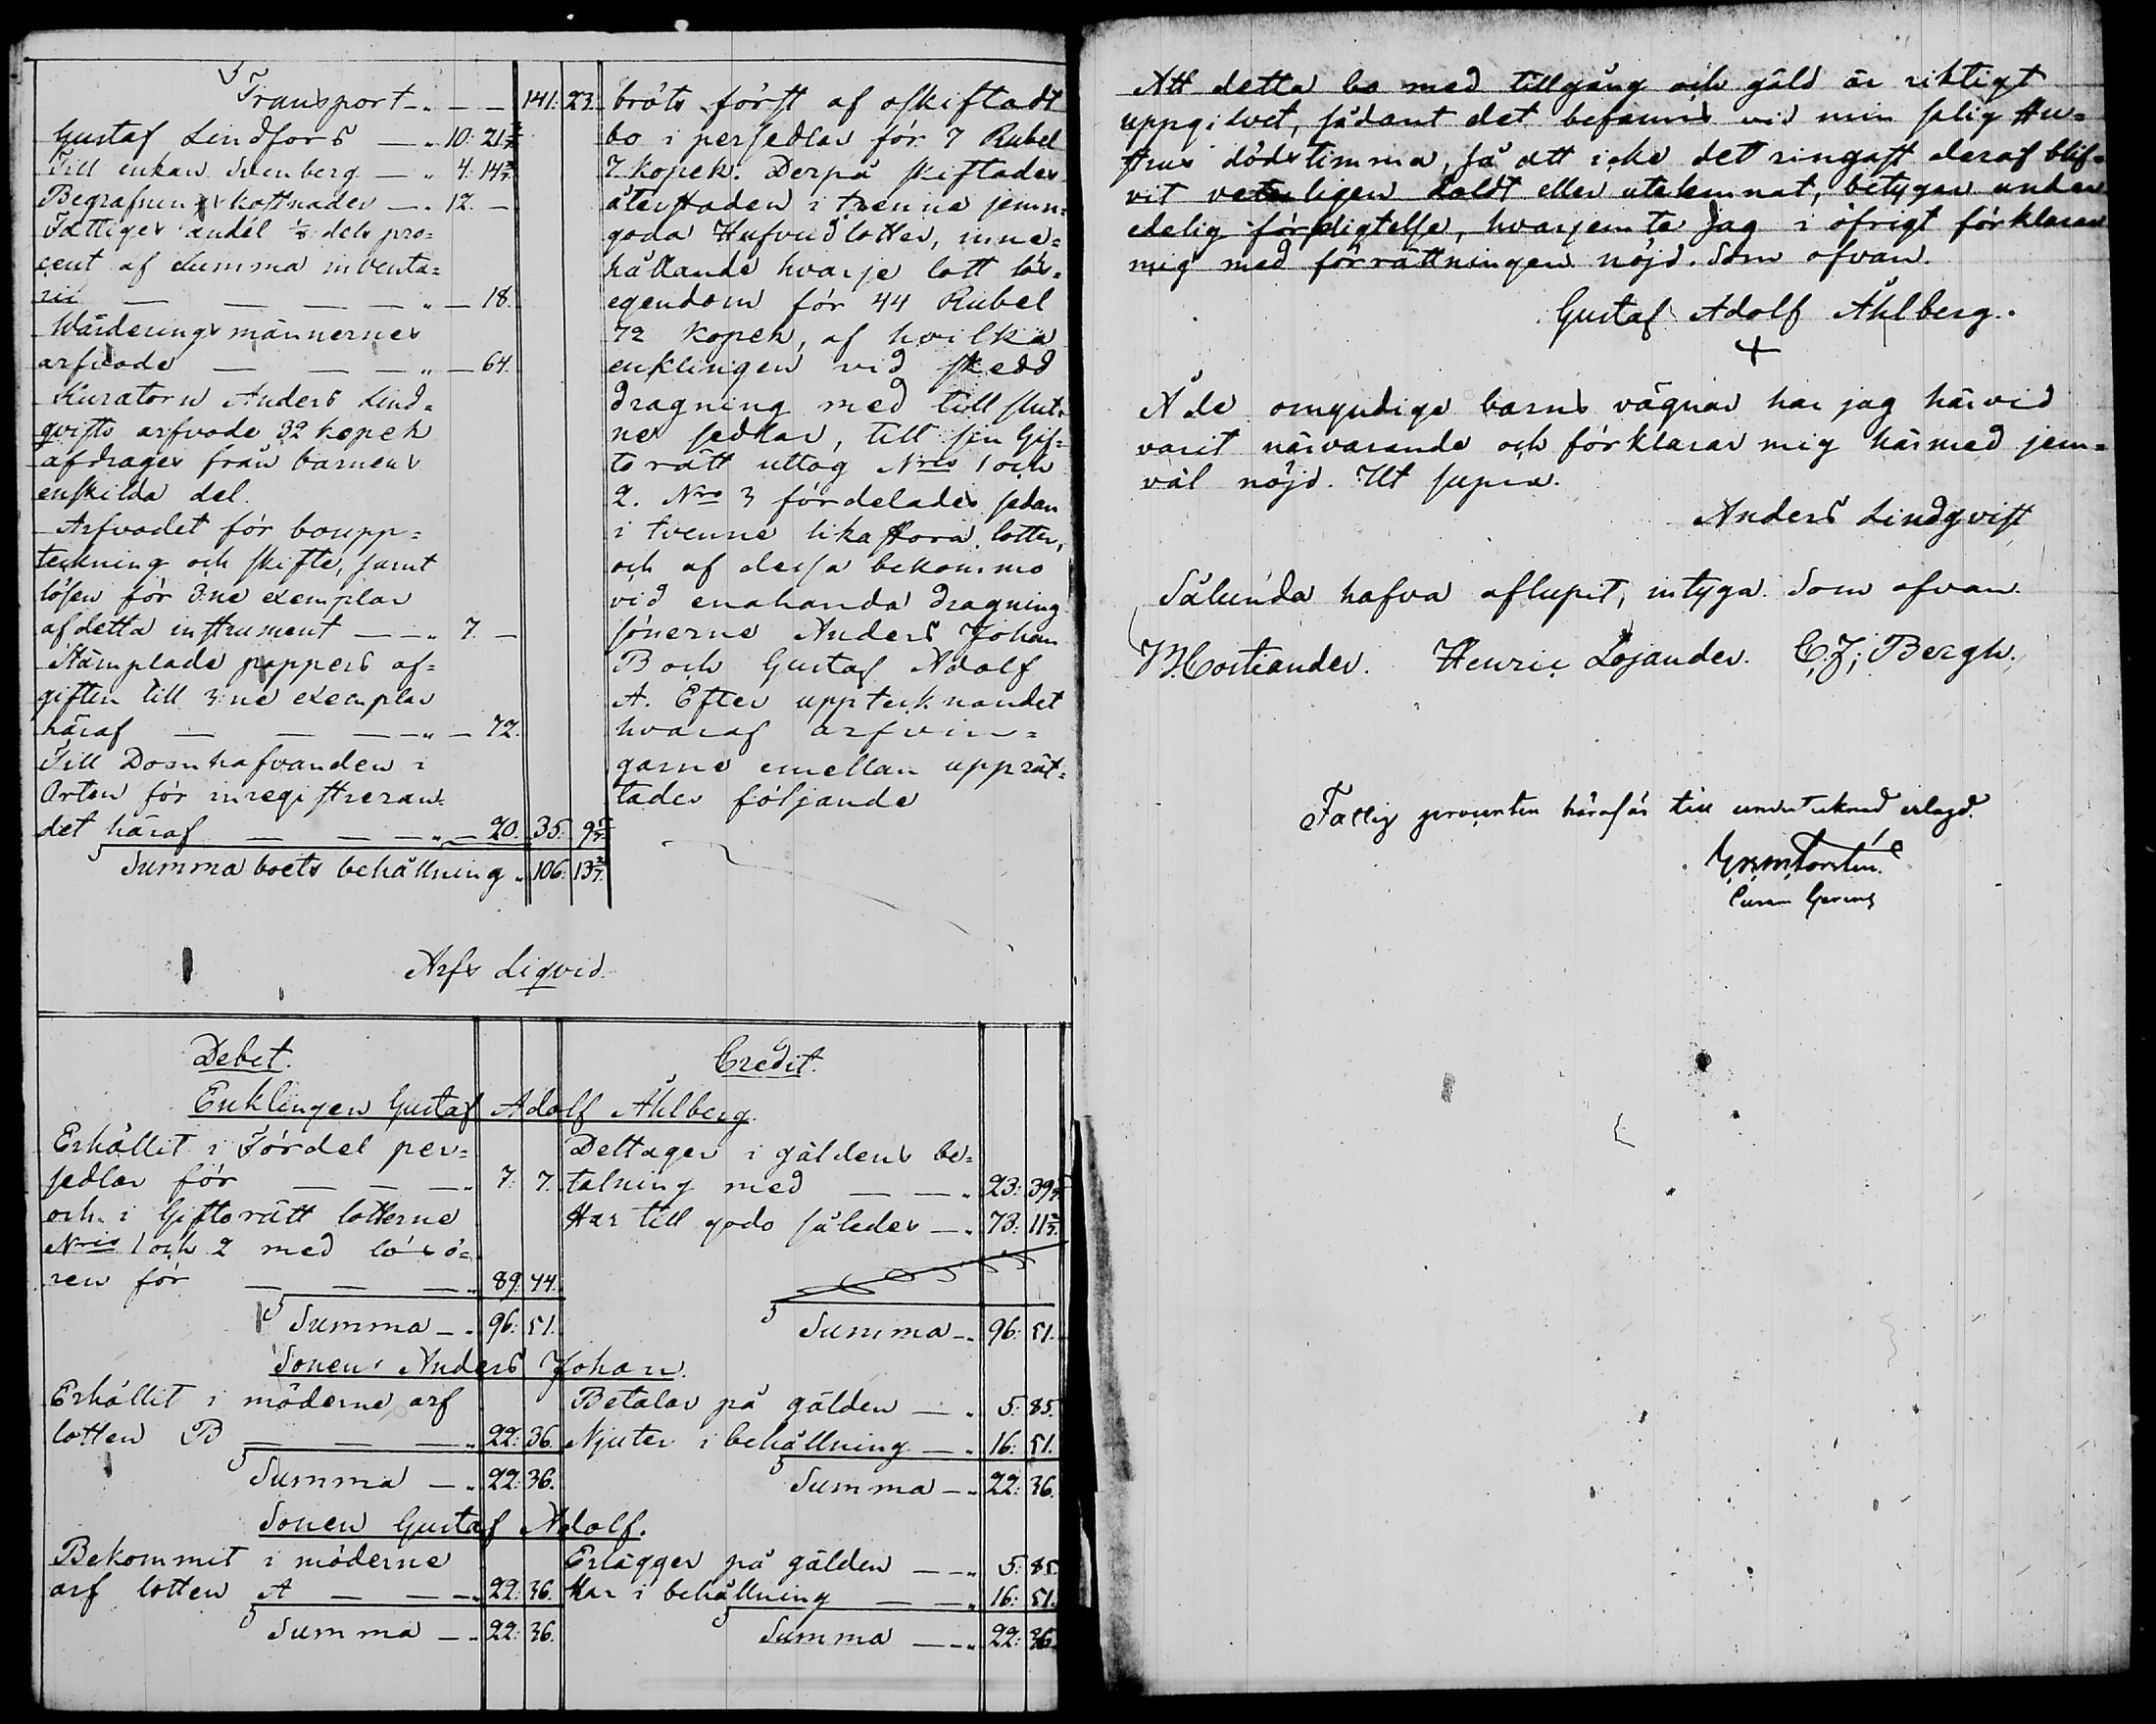 Transport „ — — 141: 23.
Gustaf Lindfors — „ 10: 21 3/7
Till enkan Stenberg — „ 4: 14 2/7
Begrafnings kostnader — „ 12. —
Fattiges andel 1/8 dels pro=
cent af Summa inventa=
rii — — — — „ — 18.
Wärderings männernes
arfvode — — — „ — 64.
Kuratorn Anders Lind=
qvists arfvode 32 kopek
afdrages från barnens
enskilda del.
Arfvodet för boupp=
teckning och skifte, samt
lösen för 3:ne exemplar
af detta instrument — — „ 7. —
Stämplade pappers af=
giften till 3:ne exemplar
häraf — — — — „ — 72.
Till Domhafvanden i
Orten för inregistreran=
det häraf — — — „ — 20. 35. 9 5/7.
Summa boets behållning „ 106: 13 2/7.
bröts först af oskiftadt
bo i persedlar för 7 Rubel
7 kopek. Derpå skiftades
återstoden i trenne jemn=
goda Hufvudlotter, inne=
hållande hvarje lott lös=
egendom för 44 Rubel
72 kopek, af hvilka
enklingen vid skedd
dragning med till slut=
ne sedlar, till sin Gif=
to rätt uttog Nris 1 och
2. Nro 3 fördelades sedan
i tvenne lika stora lotter,
och af dessa bekommo
vid enahanda dragning
sönerne Anders Johan
B och Gustaf Adolf
A. Efter uppteck nandet
hvaraf arfvin=
garne emellan upprät=
tades följande
Arfs Liqvid.
Debet. Credit.
Enklingen Gustaf Adolf Åhlberg.
Erhållit i Fördel per= Deltager i gäldens be=
sedlar för — — — „ 7: 7. talning med — — „ 23: 39 5/7
och i Giftorätt lotterne Har till godo således — „ 73: 11 2/7.
Nris 1 och 2 med lösö=
ren för — — — „ 89. 44.
Summa — „ 96: 51. Summa — „ 96: 51.
Sonen Anders Johan.
Erhållit i möderne arf Betalar på gälden — „ 5: 85.
lotten B — — — „ 22: 36. Njuter i behållning — „ 16: 51.
Summa — „ 22: 36. Summa — „ 22: 36.
Sonen Gustaf Adolf.
Bekommit i möderne Erlägger på gälden — — „ 5: 85.
arf lotten A — — — „ 22: 36. Har i behållning — — „ 16: 51.
Summa — „ 22: 36. Summa — — „ 22: 36.
Att detta bo med tillgång och gäld är riktigt
uppgifvet, sådant det befanns vid min salig Hu=
strus dödstimma, så att icke det ringast deraf blif=
vit veterligen doldt eller utelemnat, betygar under
edelig förpligtelse, hvarjemte jag i öfrigt förklarar
mig med förrättningen nöjd. Som ofvan.
Gustaf Adolf Åhlberg.
+
Å de omyndige barns vägnar har jag härvid
varit närvarande och förklarar mig härmed jem=
väl nöjd. Ut supra.
Anders Lindqvist
Sålunda hafva aflupit, intyga. Som ofvan.
Costiander. Henric Lojander. C. J. Bergh.
Fattig procenten häraf är till undertecknad erlagd.